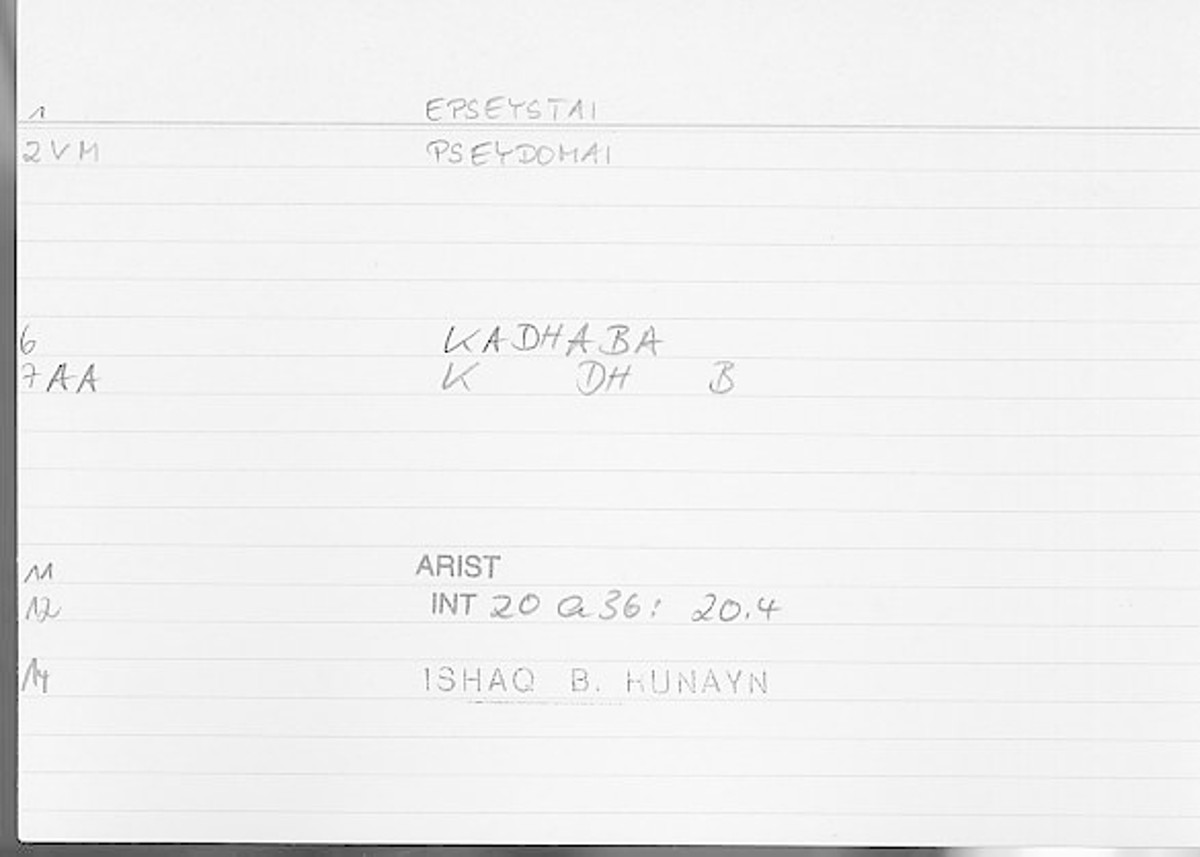 1 EPSEYSTAI
2VM PSEYDOMAI
6 KADHABA
7AA K DH B
11 ARIST
12 INT 20 a 36: 20.4
14 ISHAQ B. HUNAYN